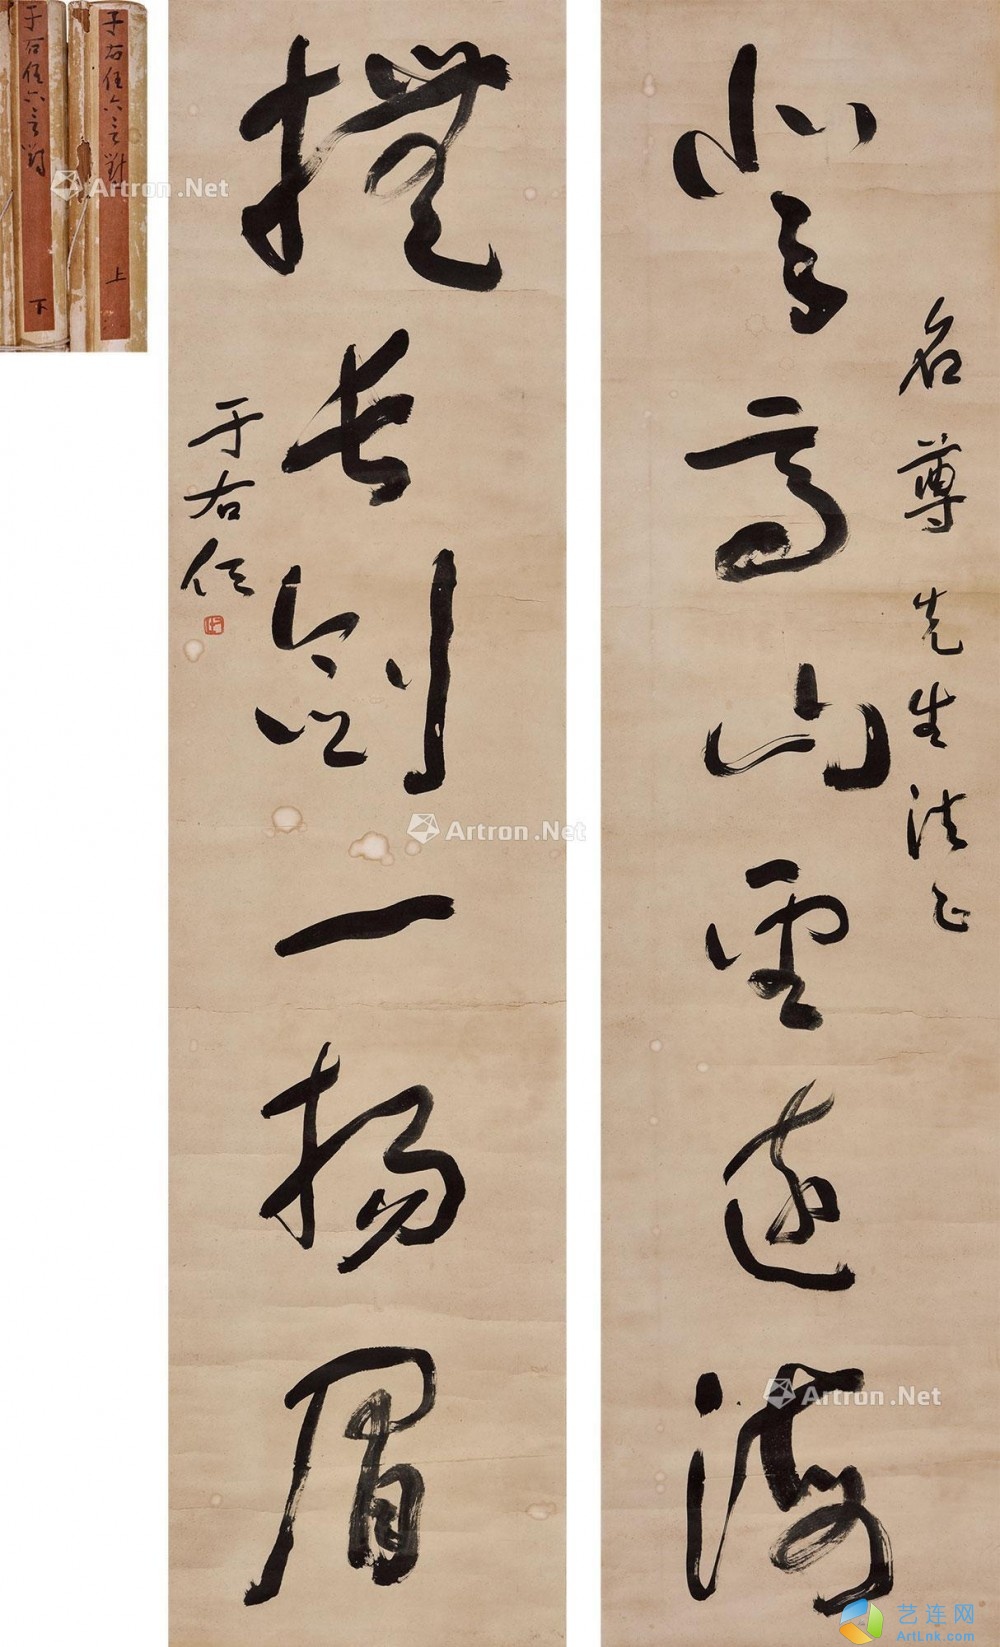 登高山望遠海
名尊先生法正
撫長劍一揚眉
于右任
于右任六言對 上
于右任六言對 下
Artron.Net
Artron.Net
Artron.Net
艺连网
ArtLnk.com